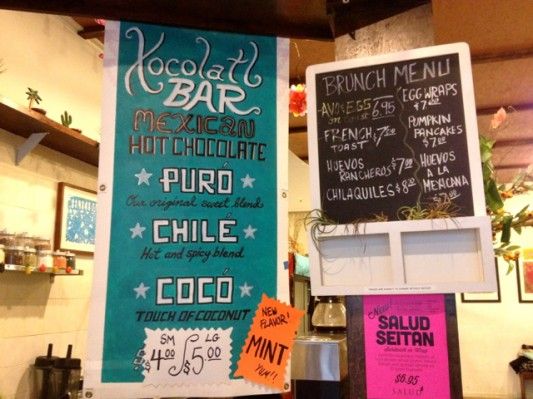 Xocolatl
BAR
MEXICAN
HOT CHOCOLATE
PURÓ
Our original sweet blend
CHILÉ
Hot and spicy blend
COCÓ
TOUCH OF COCONUT
SM
$4.00
LG
$5.00
NEW
FLAVOR!
MINT
YUM!!
BRUNCH MENU
AVO & EGG
6.95
FRENCH $7.00
TOAST
HUEVOS
RANCHEROS $7.00
CHILAQUILES $8.00
EGG WRAPS
$7.00
PUMPKIN
PANCAKES
$7.00
HUEVOS
A LA
MEXICANA
$7.00
New!
SALUD
SEITAN
Sandwich or Wrap
$6.95
SALUD